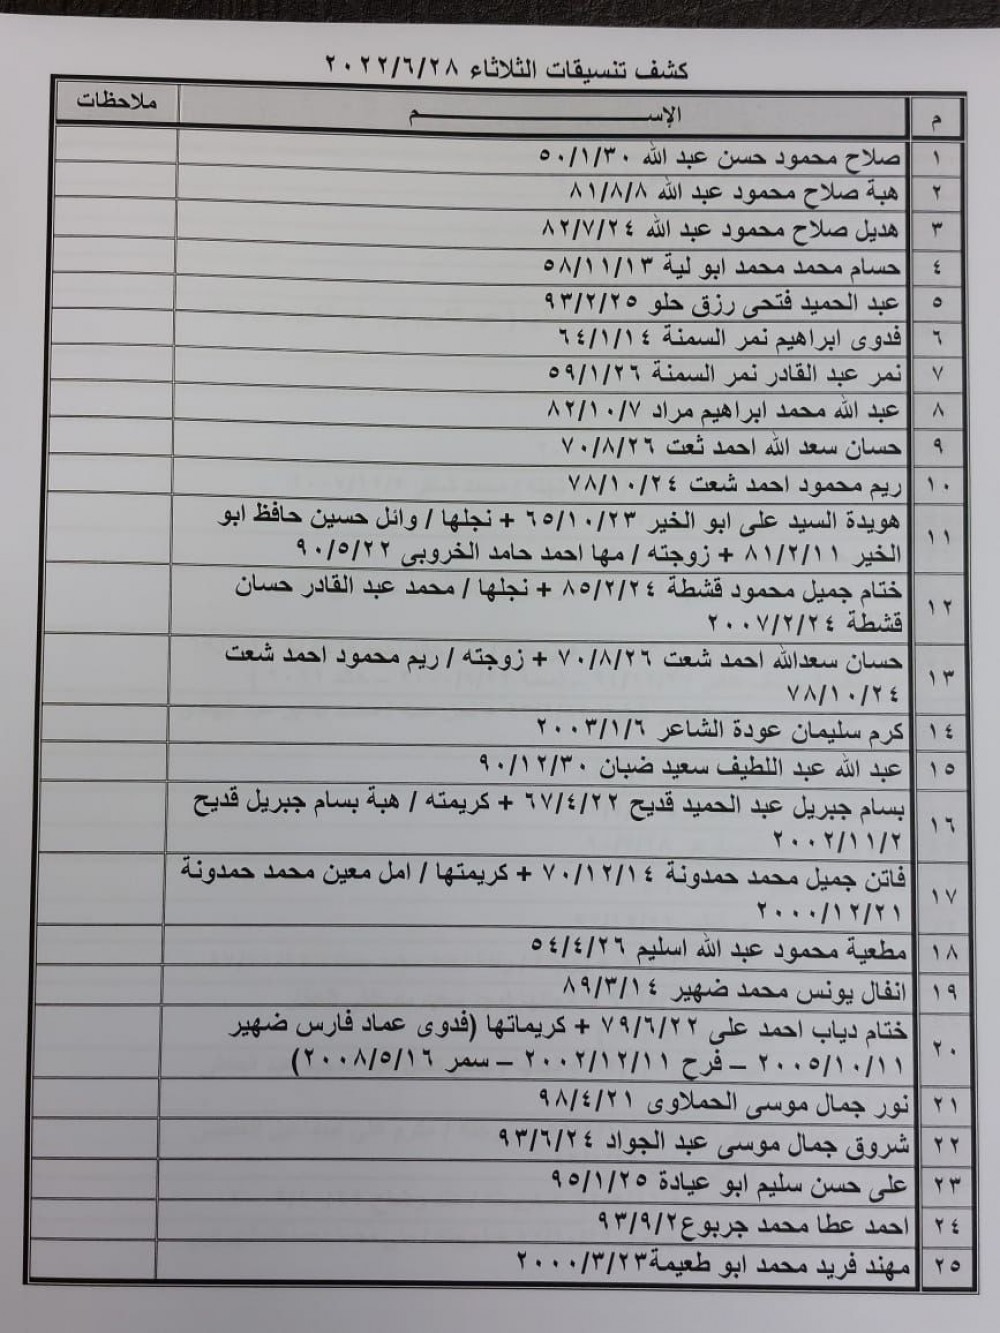 كشف تنسيقات الثلاثاء ٢٠٢٢/٦/٢٨
م الإســـــــــــم ملاحظات
١ صلاح محمود حسن عبد الله ٥٠/١/٣٠
٢ هبة صلاح محمود عبد الله ٨١/٨/٨
٣ هديل صلاح محمود عبد الله ٨٢/٧/٢٤
٤ حسام محمد محمد ابو لية ٥٨/١١/١٣
٥ عبد الحميد فتحى رزق حلو ٩٣/٢/٢٥
٦ فدوى ابراهيم نمر السمنة ٦٤/١/١٤
٧ نمر عبد القادر نمر السمنة ٥٩/١/٢٦
٨ عبد الله محمد ابراهيم مراد ٨٢/١٠/٧
٩ حسان سعد الله احمد ثعت ٧٠/٨/٢٦
١٠ ريم محمود احمد شعت ٧٨/١٠/٢٤
١١ هويدة السيد على ابو الخير ٦٥/١٠/٢٣ + نجلها / وائل حسين حافظ ابو
الخير ٨١/٢/١١ + زوجته / مها احمد حامد الخروبى ٩٠/٥/٢٢
١٢ ختام جميل محمود قشطة ٨٥/٢/٢٤ + نجلها / محمد عبد القادر حسان
قشطة ٢٠٠٧/٢/٢٤
١٣ حسان سعدالله احمد شعت ٧٠/٨/٢٦ + زوجته / ريم محمود احمد شعت
٧٨/١٠/٢٤
١٤ كرم سليمان عودة الشاعر ٢٠٠٣/١/٦
١٥ عبد الله عبد اللطيف سعيد ضبان ٩٠/١٢/٣٠
١٦ بسام جبريل عبد الحميد قديح ٦٧/٤/٢٢ + كريمته / هبة بسام جبريل قديح
٢٠٠٢/١١/٢
١٧ فاتن جميل محمد حمدونة ٧٠/١٢/١٤ + كريمتها / امل معين محمد حمدونة
٢٠٠٠/١٢/٢١
١٨ مطعية محمود عبد الله اسليم ٥٤/٤/٢٦
١٩ انفال يونس محمد ضهير ٨٩/٣/١٤
٢٠ ختام دياب احمد على ٧٩/٦/٢٢ + كريماتها (فدوى عماد فارس ضهير
٢٠٠٥/١٠/١١ – فرح ٢٠٠٢/١٢/١١ – سمر ٢٠٠٨/٥/١٦)
٢١ نور جمال موسى الحملاوى ٩٨/٤/٢١
٢٢ شروق جمال موسى عبد الجواد ٩٣/٦/٢٤
٢٣ على حسن سليم ابو عيادة ٩٥/١/٢٥
٢٤ احمد عطا محمد جربوع٩٣/٩/٢
٢٥ مهند فريد محمد ابو طعيمة٢٠٠٠/٣/٢٣